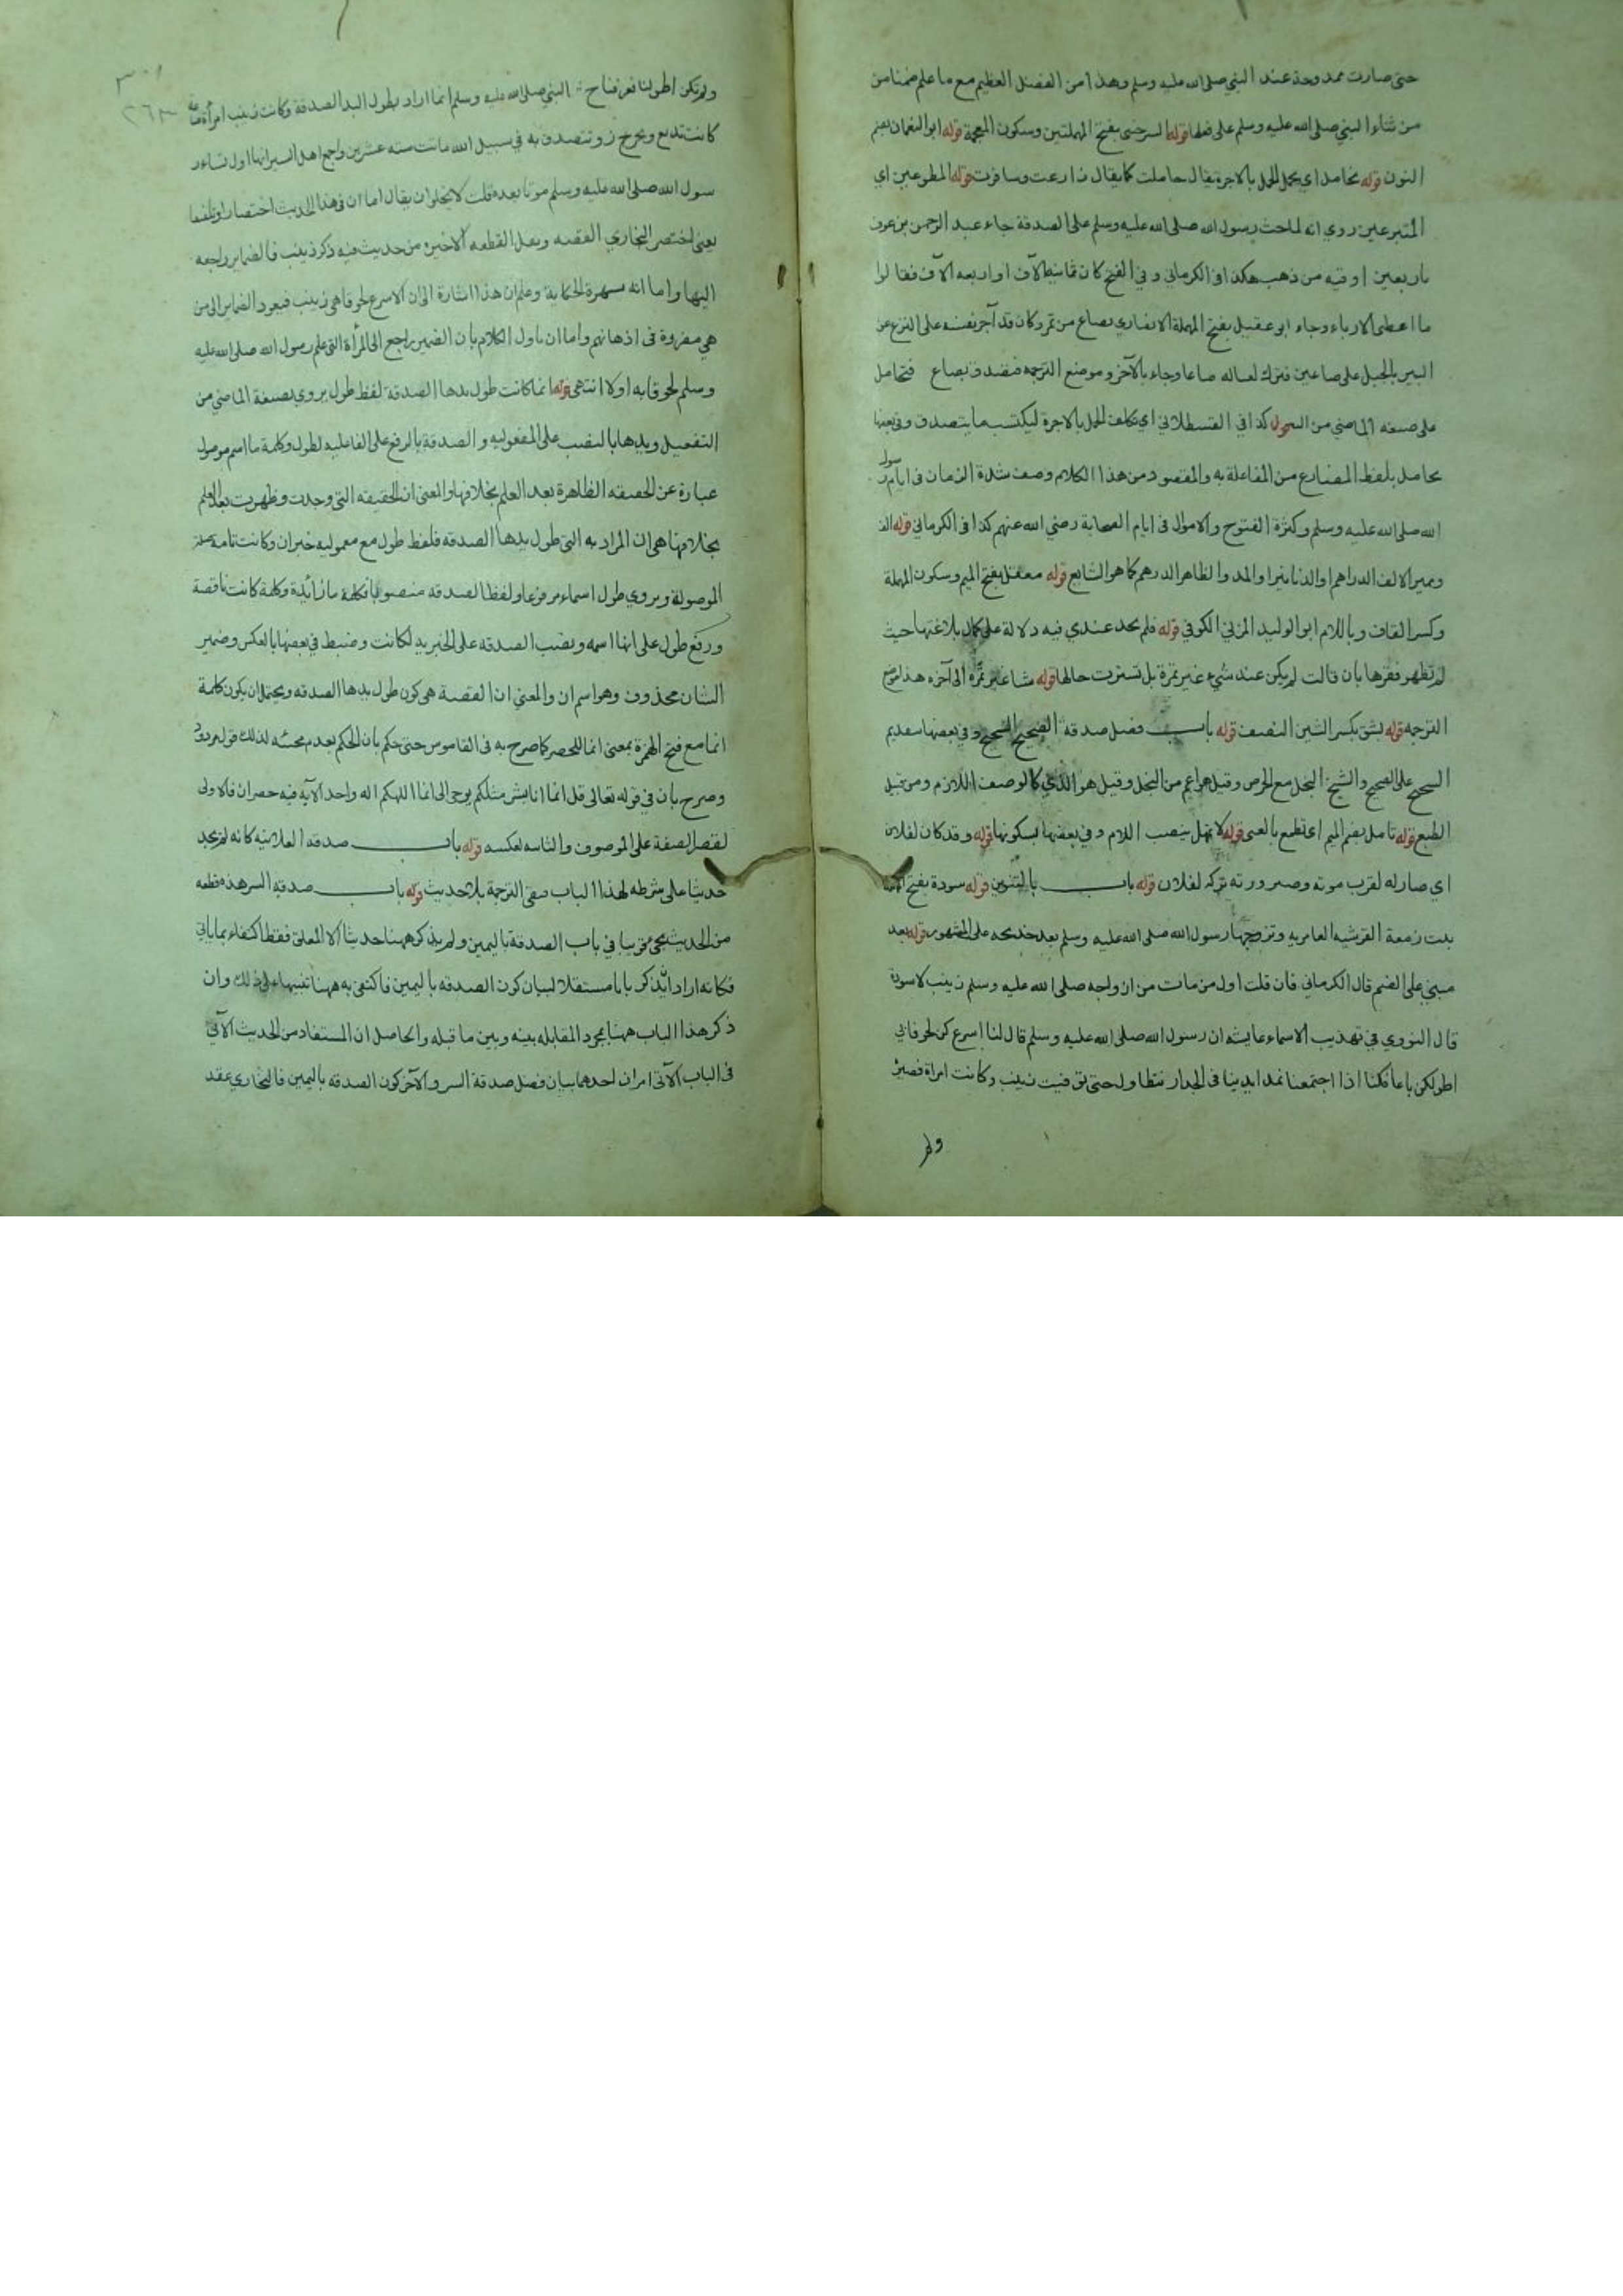 حتى صارت ممدوحة عند النبي صلى الله عليه وسلم وهذا من الفضل العظيم مع ما علم ضمنا من
من ثناء النبي صلى الله عليه وسلم على فعلها قوله السرخسي بفتح المهملتين وسكون المعجمة قوله ابو النعمان بضم
النون قوله نحامل اي نحمل الحمل بالاجرة يقال حاملت كما يقال زارعت وسافرت قوله المطوعين اي
المتبرعين روي انه لما حث رسول الله صلى الله عليه وسلم على الصدقة جاء عبد الرحمن بن عوف
باربعين اوقيه من ذهب هكذا في الكرماني وفي الفتح كان ثمانية الآف او اربعه الآف فقالوا
ما اعطى الا رياء وجاء ابو عقيل بفتح المهملة الانصاري بصاع من تمر وكان قد آجر نفسه على النزع من
البير بالحبل على صاعين فترك لعياله صاعا وجاء بالآخر وموضع الترجمه فتصدق بصاع فتحامل
على صيغه الماضي من كذا في القسطلاني اي تكلف الحمل بالاجرة ليكتسب ما يتصدق وفي بعضها
يحامل بلفظ المضارع من المفاعلة به والمقصود من هذا الكلام وصف شدة الزمان في ايام رسول
الله صلى الله عليه وسلم وكثرة الفتوح والاموال في ايام الصحابة رضي الله عنهم كذا في الكرماني قوله الف
ومميز الالف الدراهم او الدنانير او المد والظاهر الدرهم كما هو الشايع قوله معقل بفتح الميم وسكون المهملة
وكسر القاف وباللام ابو الوليد المزني الكوفي قوله فلم يجد عندي فيه دلالة على كمال بلاغتها حيث
لم تظهر فقرها بان قالت لم يكن عند شيء غير تمرة بل تسترت حالها قوله شيئا غير تمرة الى آخره هذا موضع
الترجمه قوله بشق بكسر الشين النصف قوله باب فضل صدقة الصحيح الشحيح وفي بعضها بتقديم
الشحيح على الصحيح والشح البخل مع الحرص وقيل هو اعم من البخل وقيل هو الذي كالوصف اللازم ومن قبيل
الطبع قوله تامل بضم الميم اي تطمع بالغنى قوله لا تمهل بنصب اللام وفي بعضها بسكونها قوله وقد كان لفلان
اي صار له لقرب موته وصيرورته تركه لفلان قوله باب بالتنوين قوله سودة بفتح
بنت زمعة القرشيه العامريه وتزوجها رسول الله صلى الله عليه وسلم بعد خديجه على المشهور قوله بعد
مبني على الضم قال الكرماني فان قلت اول من مات من ازواجه صلى الله عليه وسلم زينب لا سودة
قال النووي في تهذيب الاسماء عايشه ان رسول الله صلى الله عليه وسلم قال لنا اسرعكن لحوقا بي
اطولكن باعا فكنا اذا اجتمعنا نمد ايدينا في الجدار نتطاول حتى توفيت زينب وكانت امراة قصيرة
ولم
٣٠١
٢٦٣
ولم تكن اطولنا فعرفنا ح ان النبي صلى الله عليه وسلم انما اراد بطول اليد الصدقة وكانت زينب امرأة صناعة
كانت تدبغ وتخرز وتتصدق به في سبيل الله ماتت سنه عشرين واجمع اهل السير انها اول نساء ر
سول الله صلى الله عليه وسلم موتا بعده قلت لا يخلو ان يقال اما ان في هذا الحديث اختصارا وتلفيقا
يعني اختصر البخاري القصه ونقل القطعه الاخيره من حديث فيه ذكر زينب فالضماير راجعه
اليها واما انه شهرة الحكاية وعلم ان هذا اشارة الى ان الاسرع لحوقا هي زينب فيعود الضماير الى من
هي مقررة في اذهانهم واما ان ياول الكلام بان الضمير راجع الى المرأة التي علم رسول الله صلى الله عليه
وسلم لحوقها به اولا انتهى قوله انما كانت طول يدها الصدقة لفظ طول يروى بصيغة الماضي من
التفعيل ويدها بالنصب على المفعوليه والصدقة بالرفع على الفاعليه لطول وكلمة ما اسم موصول
عبارة عن الحقيقه الظاهرة بعد العلم بخلافها والمعنى ان الحقيقه التي وجدت وظهرت بعد العلم
بخلافها هي ان المراد به التي طول يدها الصدقه فلفظ طول مع معموليه خبر ان وكانت تامة صلة
الموصولة ويروى طول اسما مرفوعا ولفظ الصدقه منصوبا فكلمة ما زائدة وكلمة كانت ناقصة
ورفع طول على انها اسمه ونصب الصدقه على الخبريه لكانت وضبط في بعضها بالعكس وضمير
الشان محذوف وهو اسم ان والمعنى ان القصة هي كون طول يدها الصدقه ويحتمل ان يكون كلمة
انما مع فتح الهمزة بمعنى انما للحصر كما صرح به في القاموس حتى حكم بان الحكم بعدم مجيئه لذلك قول مردود
وصرح بان في قوله تعالى قل انما انا بشر مثلكم يوحى الى انما الهكم اله واحد الآيه فيه حصران فالاولى
لقصر الصفة على الموصوف والثانيه لعكسه قوله باب صدقه العلانيه كانه لم يجد
حديثا على شرطه لهذا الباب فبقى الترجمة بلا حديث قوله باب صدقه السر هذه قطعه
من الحديث يجيء قريبا في باب الصدقة باليمين ولم يذكر ههنا حديثا الا المعلق فقط اكتفاء بما ياتي
فكانه اراد ان يذكر بابا مستقلا لبيان كون الصدقه باليمين فاكتفى به ههنا تنبيها على ذلك وان
ذكر هذا الباب ههنا بمجرد المقابله بينه وبين ما قبله والحاصل ان المستفاد من الحديث الآتي
في الباب الآتي امران احدهما بيان فضل صدقة السر والآخر كون الصدقه باليمين فالبخاري عقد